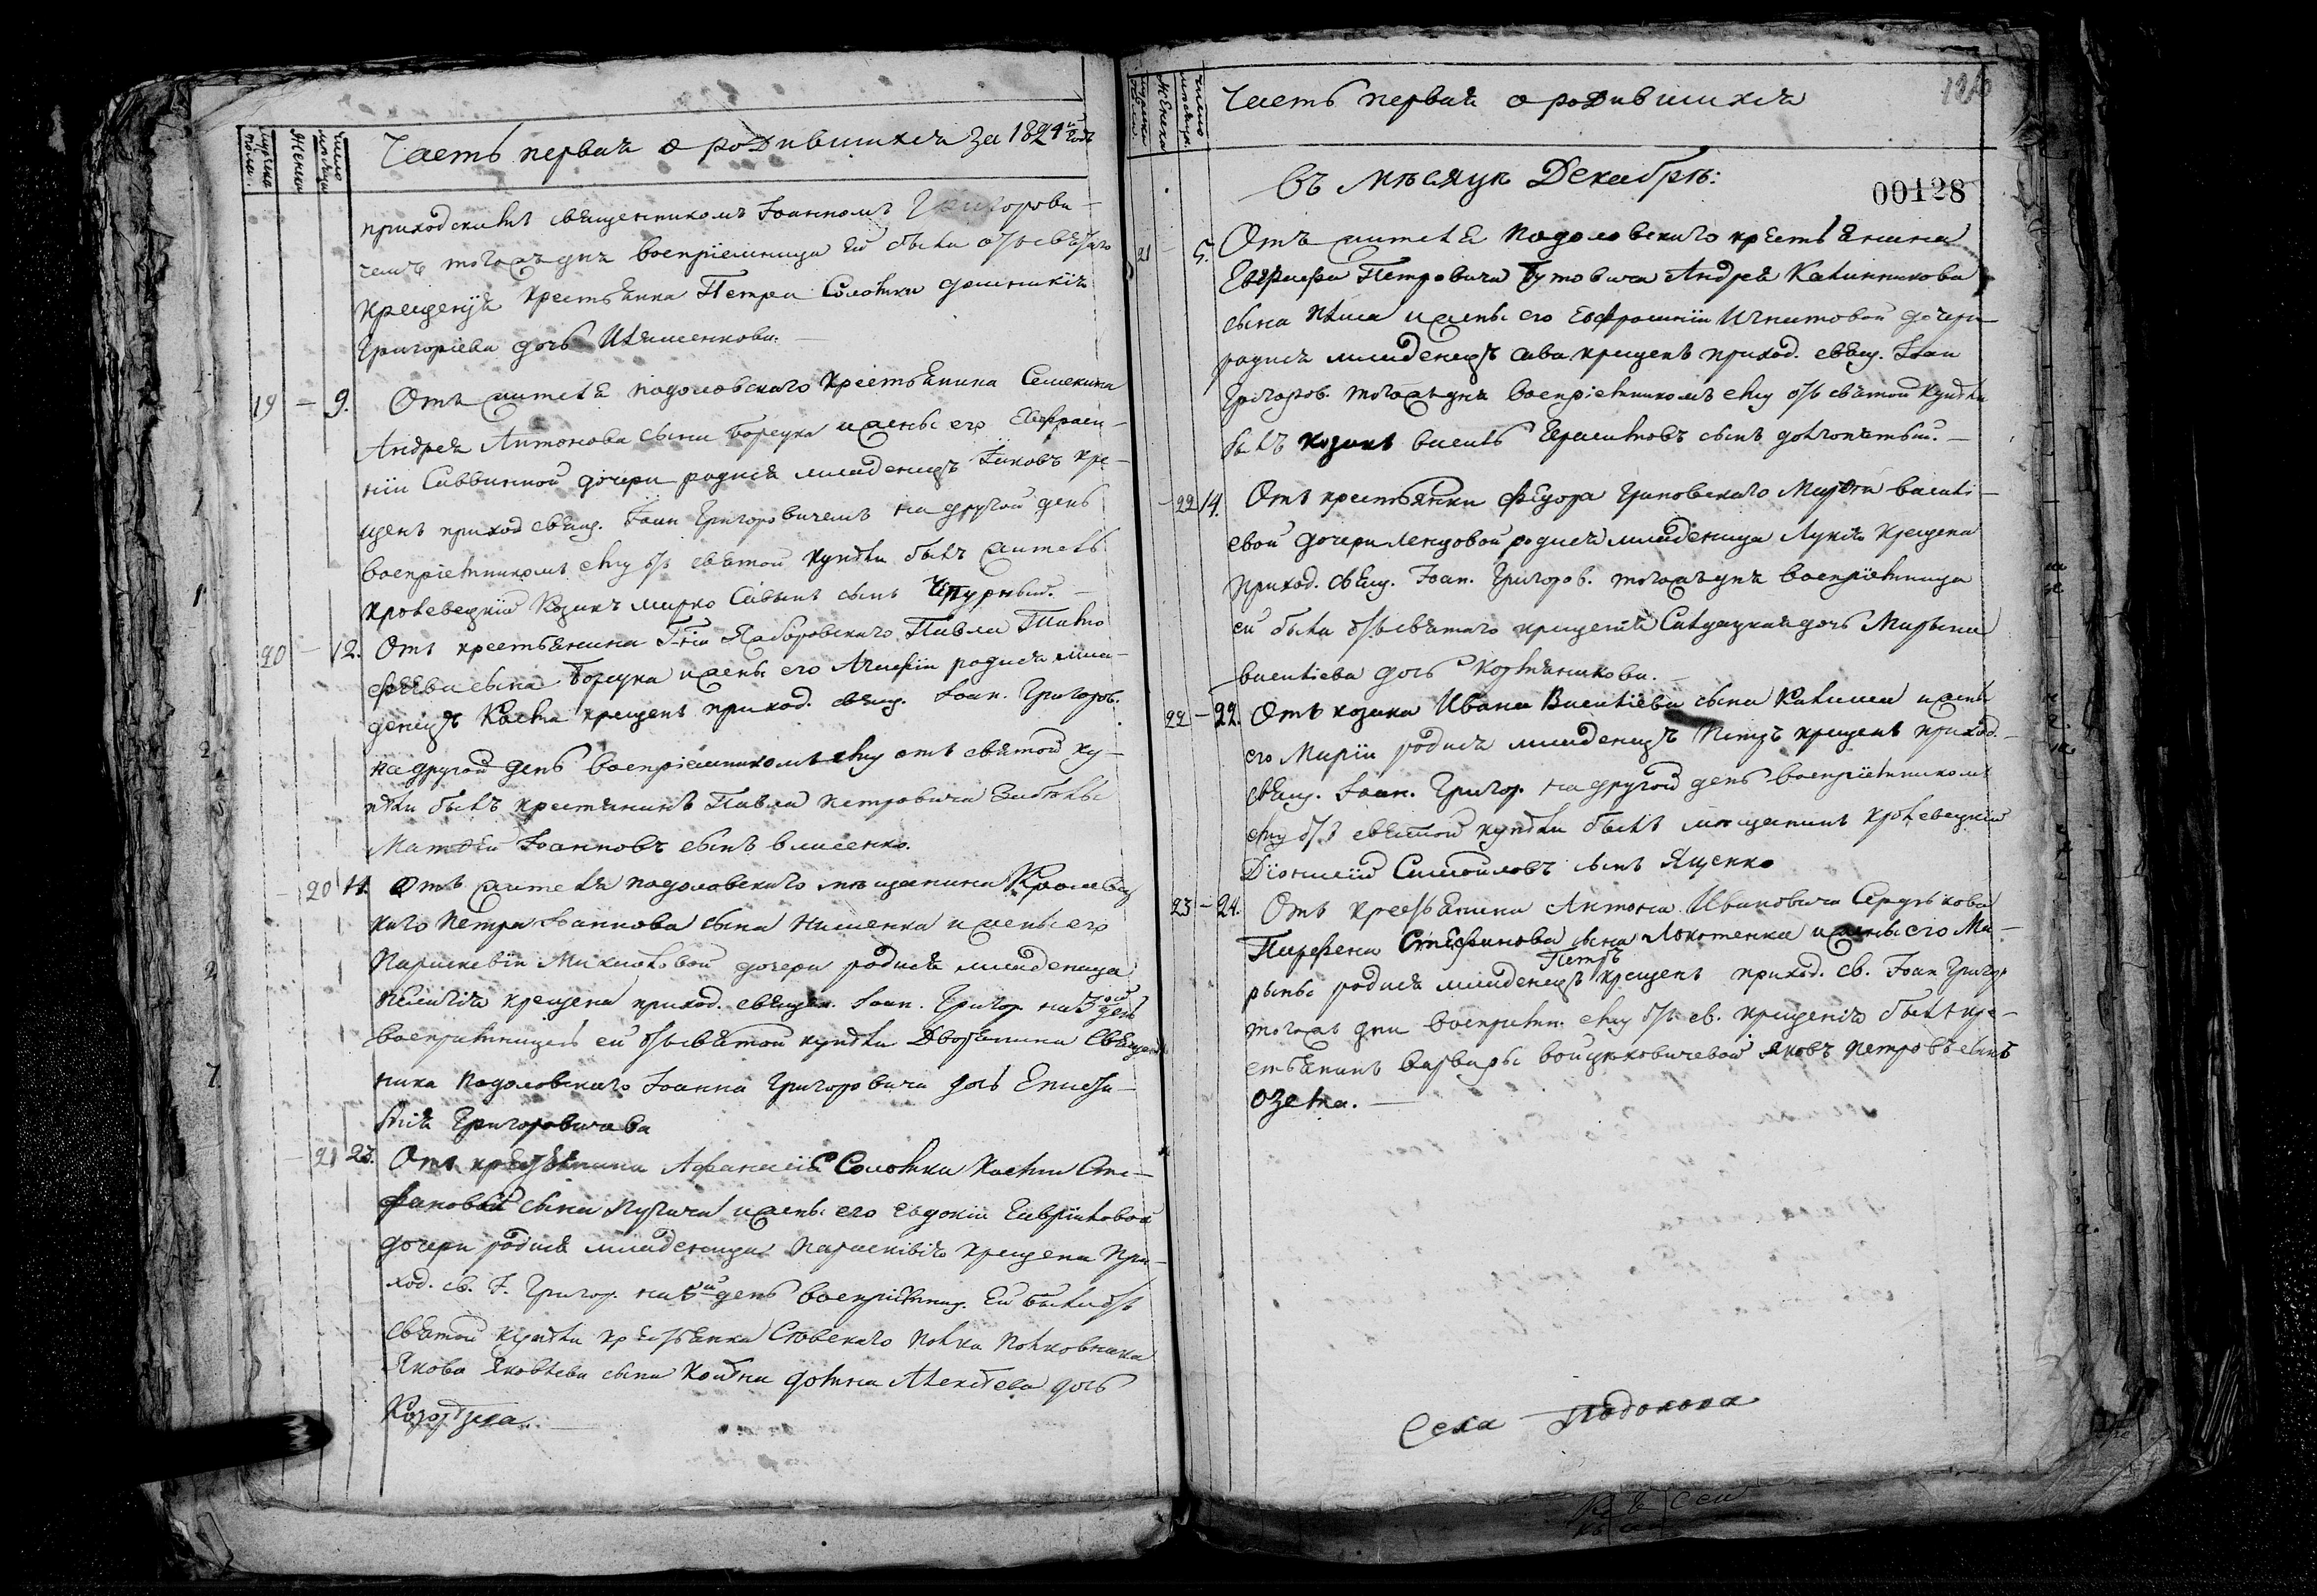 Часть первая о родившихся за 1824й годъ
мужеска полу.
женска
число месяца
приходскимъ священникомъ Іоанномъ Григорови-
чемъ тогожъ дня воспріемница ей была отъ святаго
крещенія крестьянка Петра Солохи домникія
Григоріева дочь
19 – 9. Отъ жителя подоловского крестьянина Семекина
Андрея Антонова сына Борсука и жены его Евфроси-
ніи Саввиной дочери родися младенецъ Іаковъ кре-
щенъ приход свящ. Іоан Григоровичемъ на другой день
воспріемникомъ ему отъ святой купѣли былъ житель
кролевецкій козакъ марко Савынъ сынъ
20 – 12. Отъ крестьянина Г-на Яаборовскаго Павла Тимо
фѣева сына Борсука и жены его родися мла-
денецъ Косма крещенъ приход. свящ. Іоан. Григоров.
на другой день воспріемникомъ ему отъ святой ку-
пѣли былъ крестянинъ Павла петровича
Матѳей Іоанновъ сынъ власенко.
– 20 11. Отъ жителя подоловскаго мѣщанина Кролевец
каго петра Іоаннова сына и жены его
Параскевіи Михайловой дочери родися младеница
крещена приход. священ. Іоан. Григор. на 3ой день
воспріемницею ей отъ святой купѣли Дворянина Священ
ника подоловскаго Іоанна Григоровича дочь
Григоровичева
– 21 23. Отъ крестьянина Афанасія Солохи Космы Сте-
фановой сына Пугача и жены его Евдокіи Гавріиловой
дочери родися младеница параскевія крещена При-
ход. св. І. Григор. на день воспріемниц. Ей была отъ
святой купѣли крестьянка Сѣвскаго полка полковника
Якова Яковлева сына домна Алексѣева дочь

Часть первая о родившихся
126
мужеска полу.
женска
число месяца
въ Мѣсяцѣ Декабрѣ:
00128
21 – 5. Отъ жителя Подоловскаго крестьянина
Петровича Бутовича Андрея Калинникова
сына и жены его Евфросиніи дочери
родися младенецъ сава крещенъ приход. свящ. Іоан
Григоров. тогожъ дня воспріемникомъ ему отъ святой купѣли
былъ козакъ василь Герасимовъ сынъ долгопятый. –
– 22 14. Отъ крестьянки федора Грановскаго Марѳы василі-
евой дочери ленцовой родися младеница Лукія крещена
Приход. свящ. Іоан. Григоров. тогожъ дня воспріемница
ей была отъ святаго крещенія Салдацкая дочь Марына
василіева дочь
22 – 22. Отъ козака Ивана Василіева сына и жены
его Маріи родися младенецъ Петръ крещенъ приход.
свящ. Іоан. Григор. на другой день воспріемникомъ
ему отъ святой купѣли былъ мѣщанинъ кролевецкій
Діонисій Самойловъ сынъ Яценко
23 – 24. Отъ крестьянина Антона Ивановича Сердюкова
Парфена Стефанова сына Локотенка и жены его Ма-
Петръ
рыны родися младенецъ крещенъ приход. св. Іоан Григор
тогожъ дня воспріемн. ему отъ св. крещенія былъ кре-
стьянинъ варвары войцеховичевой яковъ петровъ сынъ
озетка. –
Села Подолова